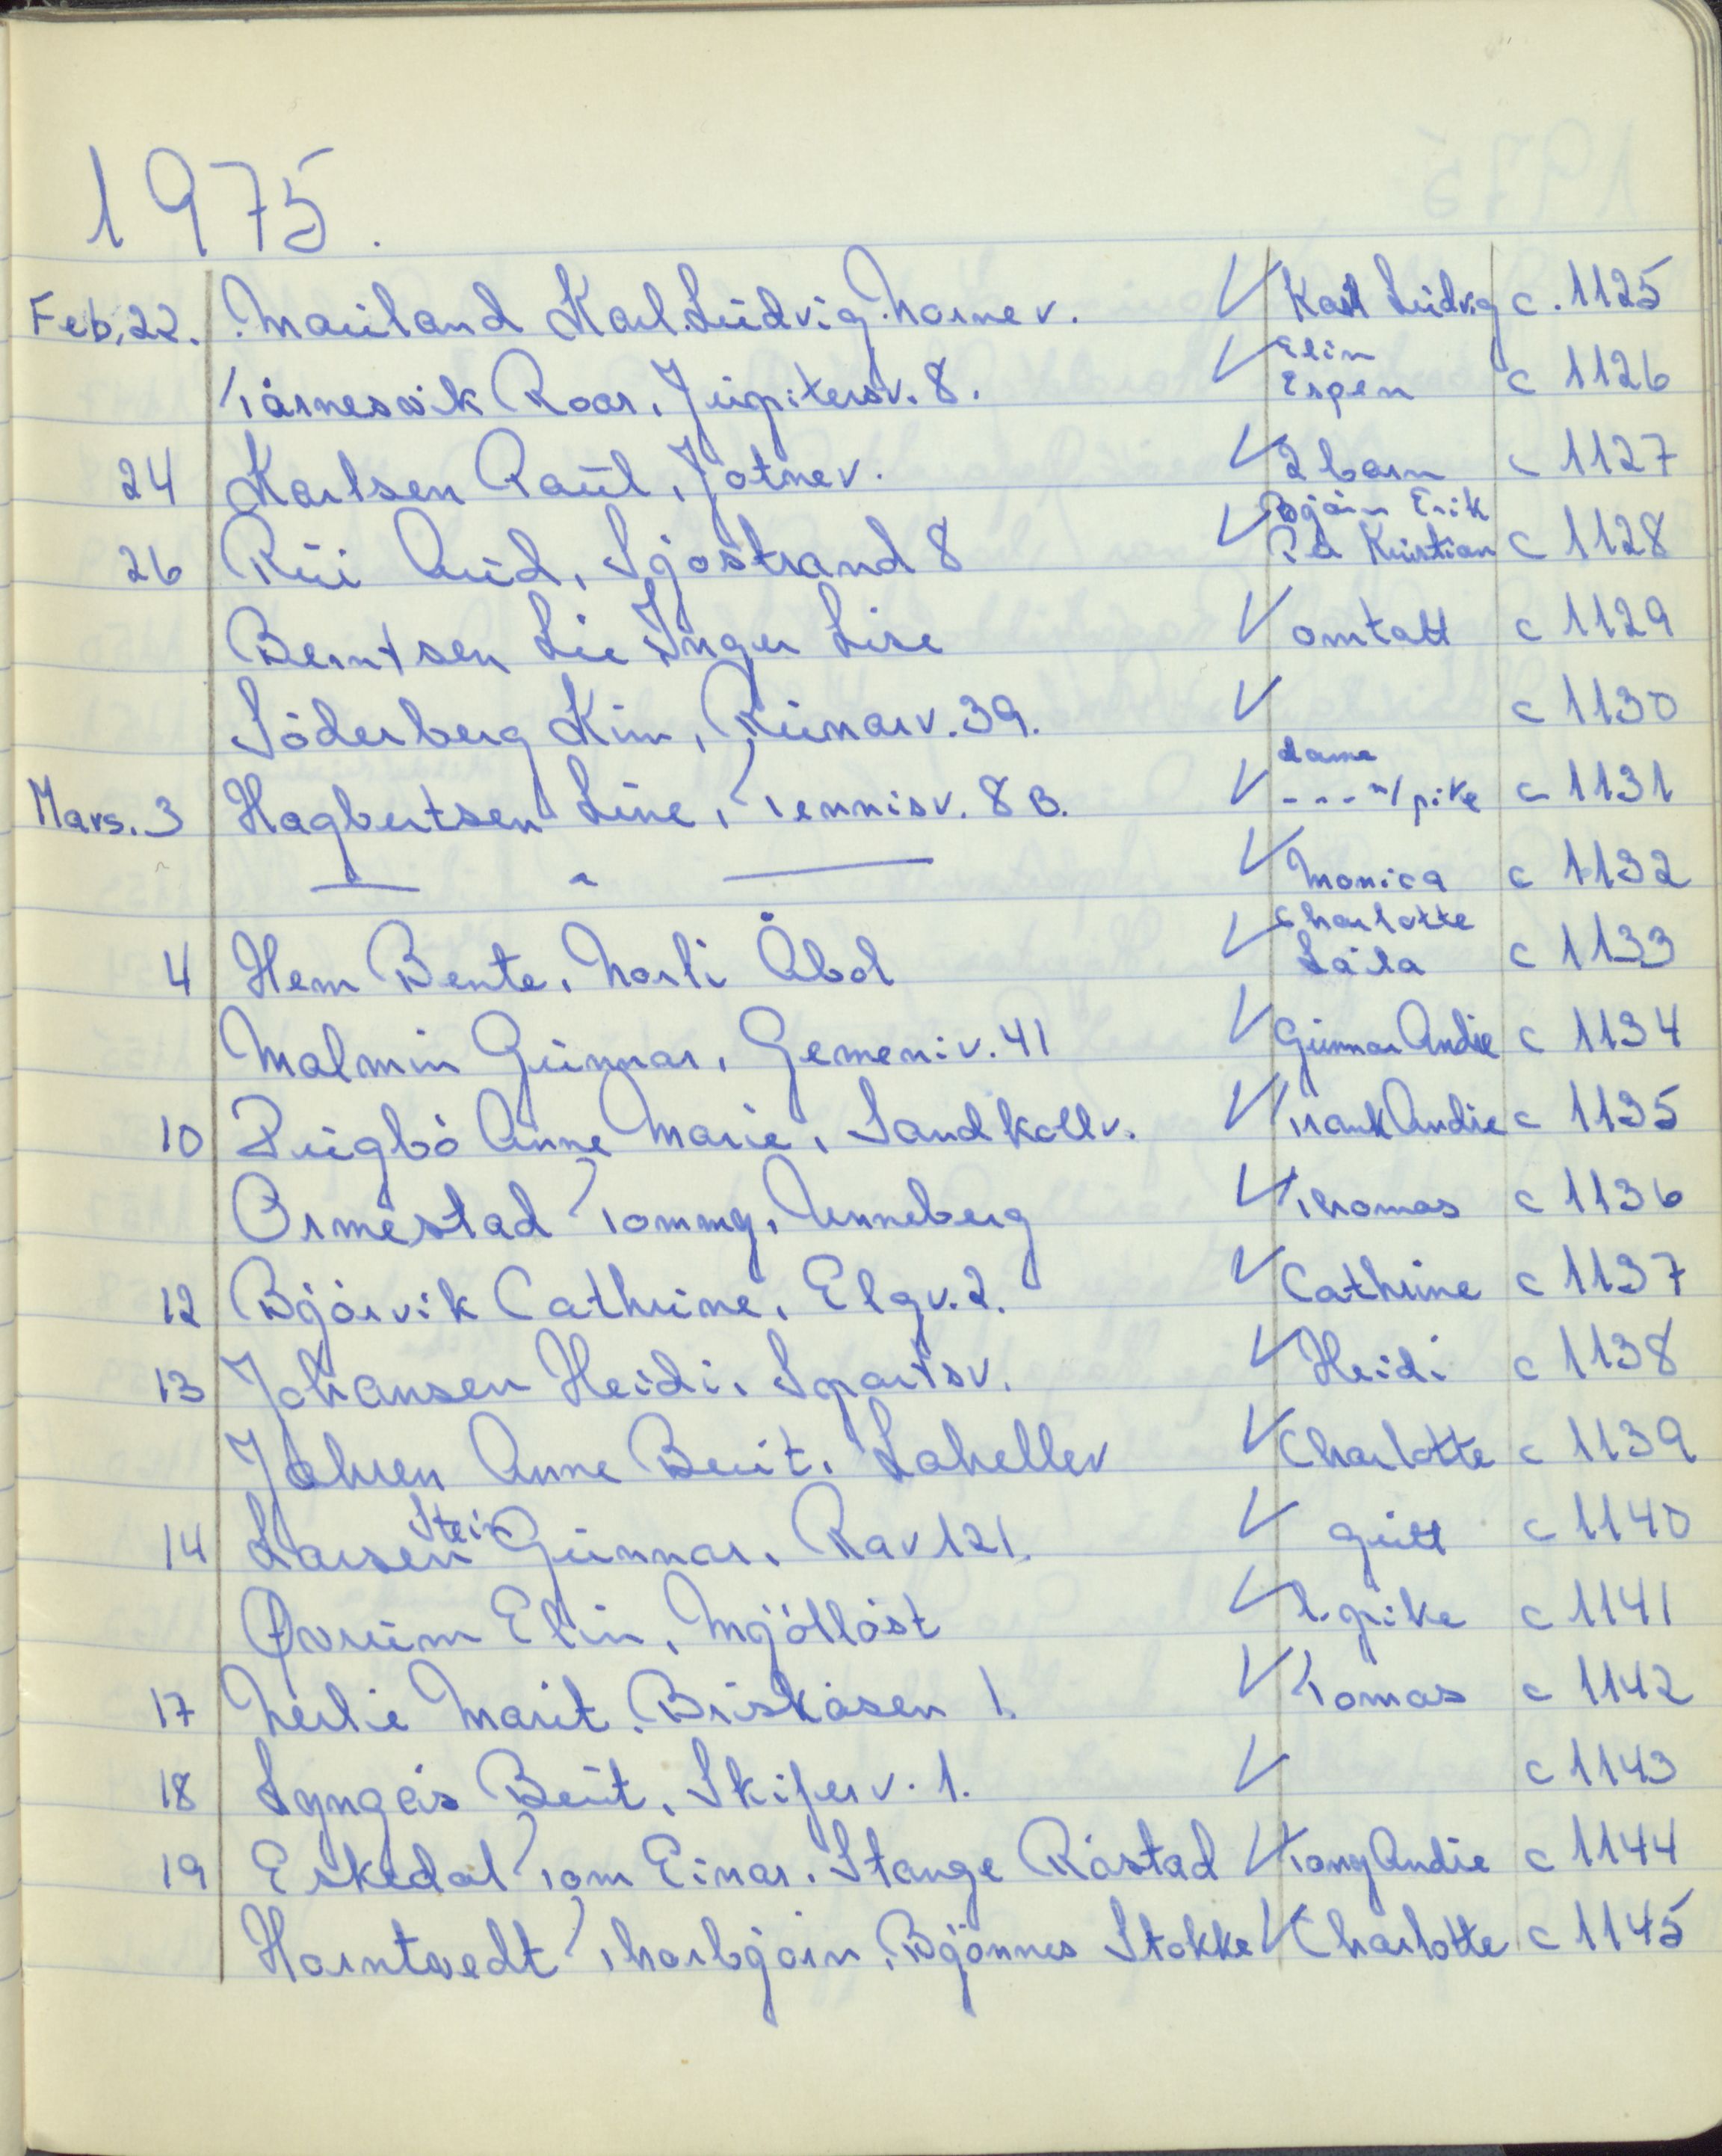 1975.
Feb. 22. Mauland Karl Ludvig. Nornev. ✓ Karl Ludvig c. 1125
Tårnesvik Roar, Jupitersv. 8. ✓ Elin Espen c 1126
24 Karlsen Paul, Jotnev. ✓ 2 barn c 1127
26 Rui Aud, Sjøstrand 8 ✓ Bjørn Erik Per Kristian c 1128
Berntsen Lie Inger Lise ✓ omtatt c 1129
Söderberg Kim, Runarv. 39. ✓ c 1130
Mars. 3 Hagbertsen Line, Tennisv. 8 B. ✓ dame --- m/pike c 1131
— " — ✓ Monica c 1132
4 Hem Bente, Norli Åbol ✓ Charlotte Laila c 1133
Malmin Gunnar, Gemeniv. 41 ✓ Gunnar Andre c 1134
10 Fuglbö Anne Marie, Sandkollv. ✓ Frank Andre c 1135
Ormestad Tommy, Unneberg ✓ Thomas c 1136
12 Bjørvik Cathrine, Elgv. 2. ✓ Cathrine c 1137
13 Johansen Heidi, Sportsv. ✓ Heidi c 1138
Jahren Anne Berit, Lahellev ✓ Charlotte c 1139
14 Larsen Stein Gunnar, Rav 121. ✓ gutt c 1140
Øvrum Elin, Mjølløst ✓ 1. pike c 1141
17 Nerlie Marit, Briskåsen 1. ✓ Tomas c 1142
18 Lyngås Berit, Skiferv. 1. ✓ c 1143
19 Eskedal Tom Einar. Stange Råstad ✓ Tony Andre c 1144
Horntvedt Thorbjørn, Bjønnes Stokke ✓ Charlotte c 1145